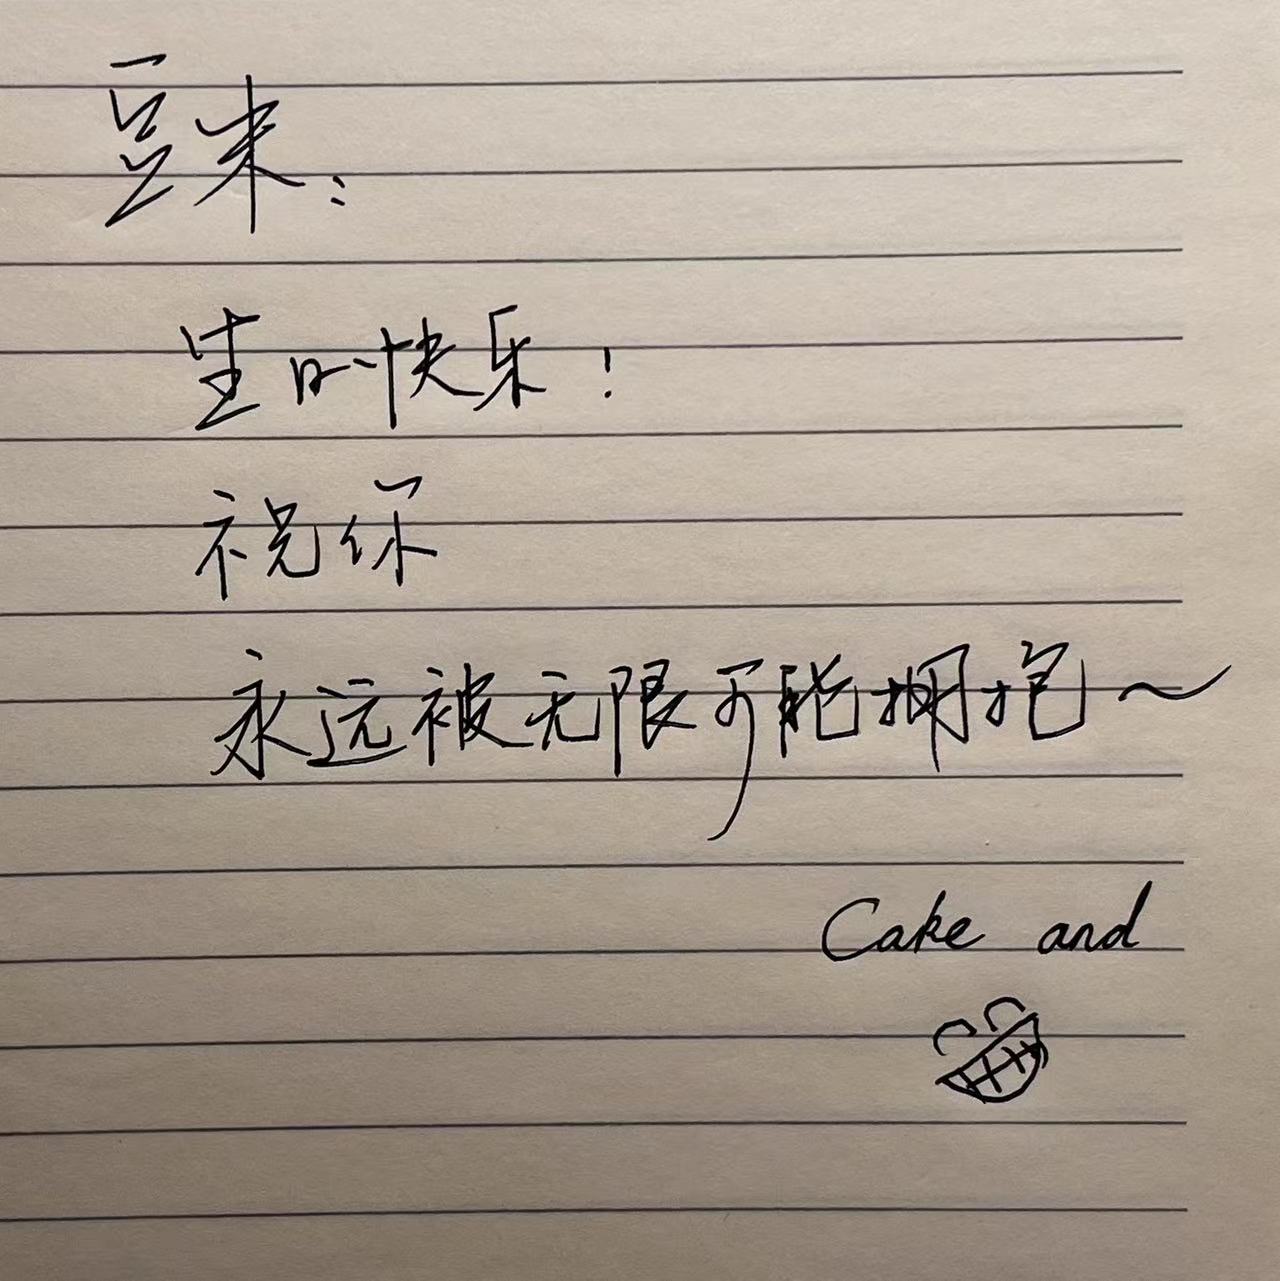 豆米：
生日快乐！
祝你
永远被无限可能拥抱～
Cake and